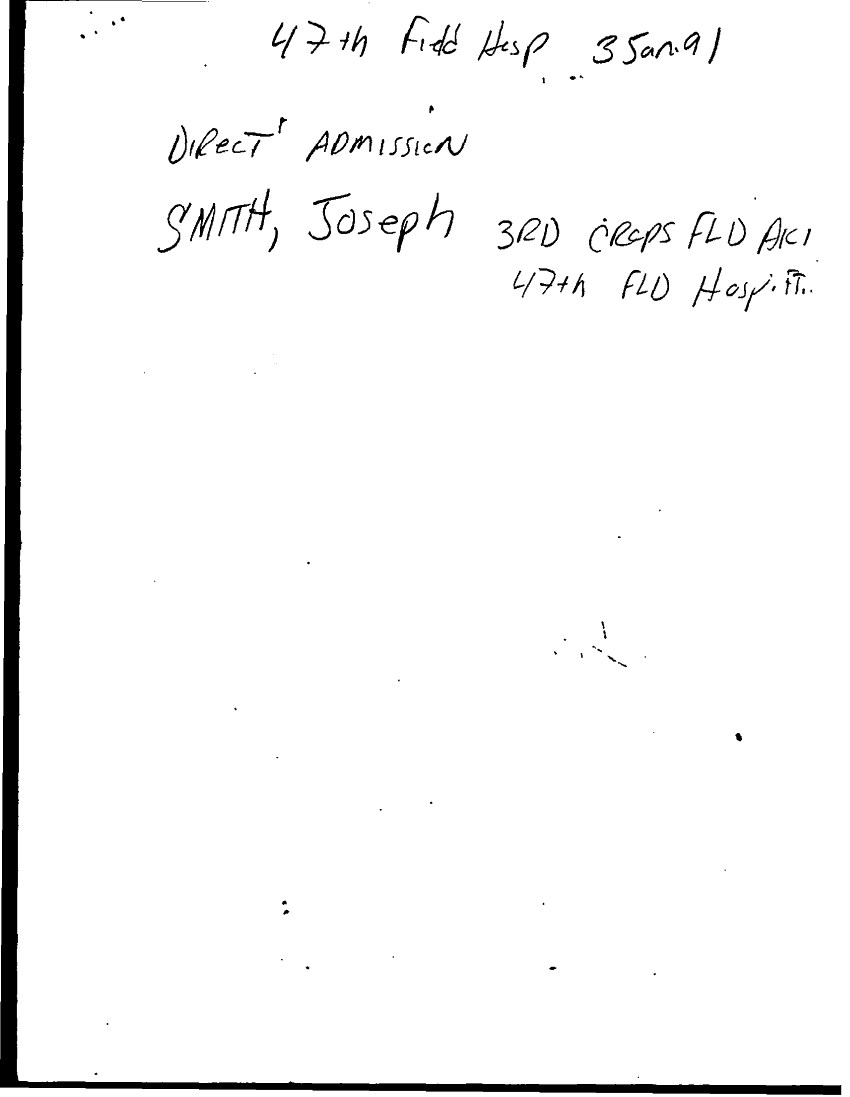 47th Field Hosp 3 Jan. 91
DIRect ADMISSION
SMITH, Joseph 3RD CROPS FLD
47th FLD Hosp.